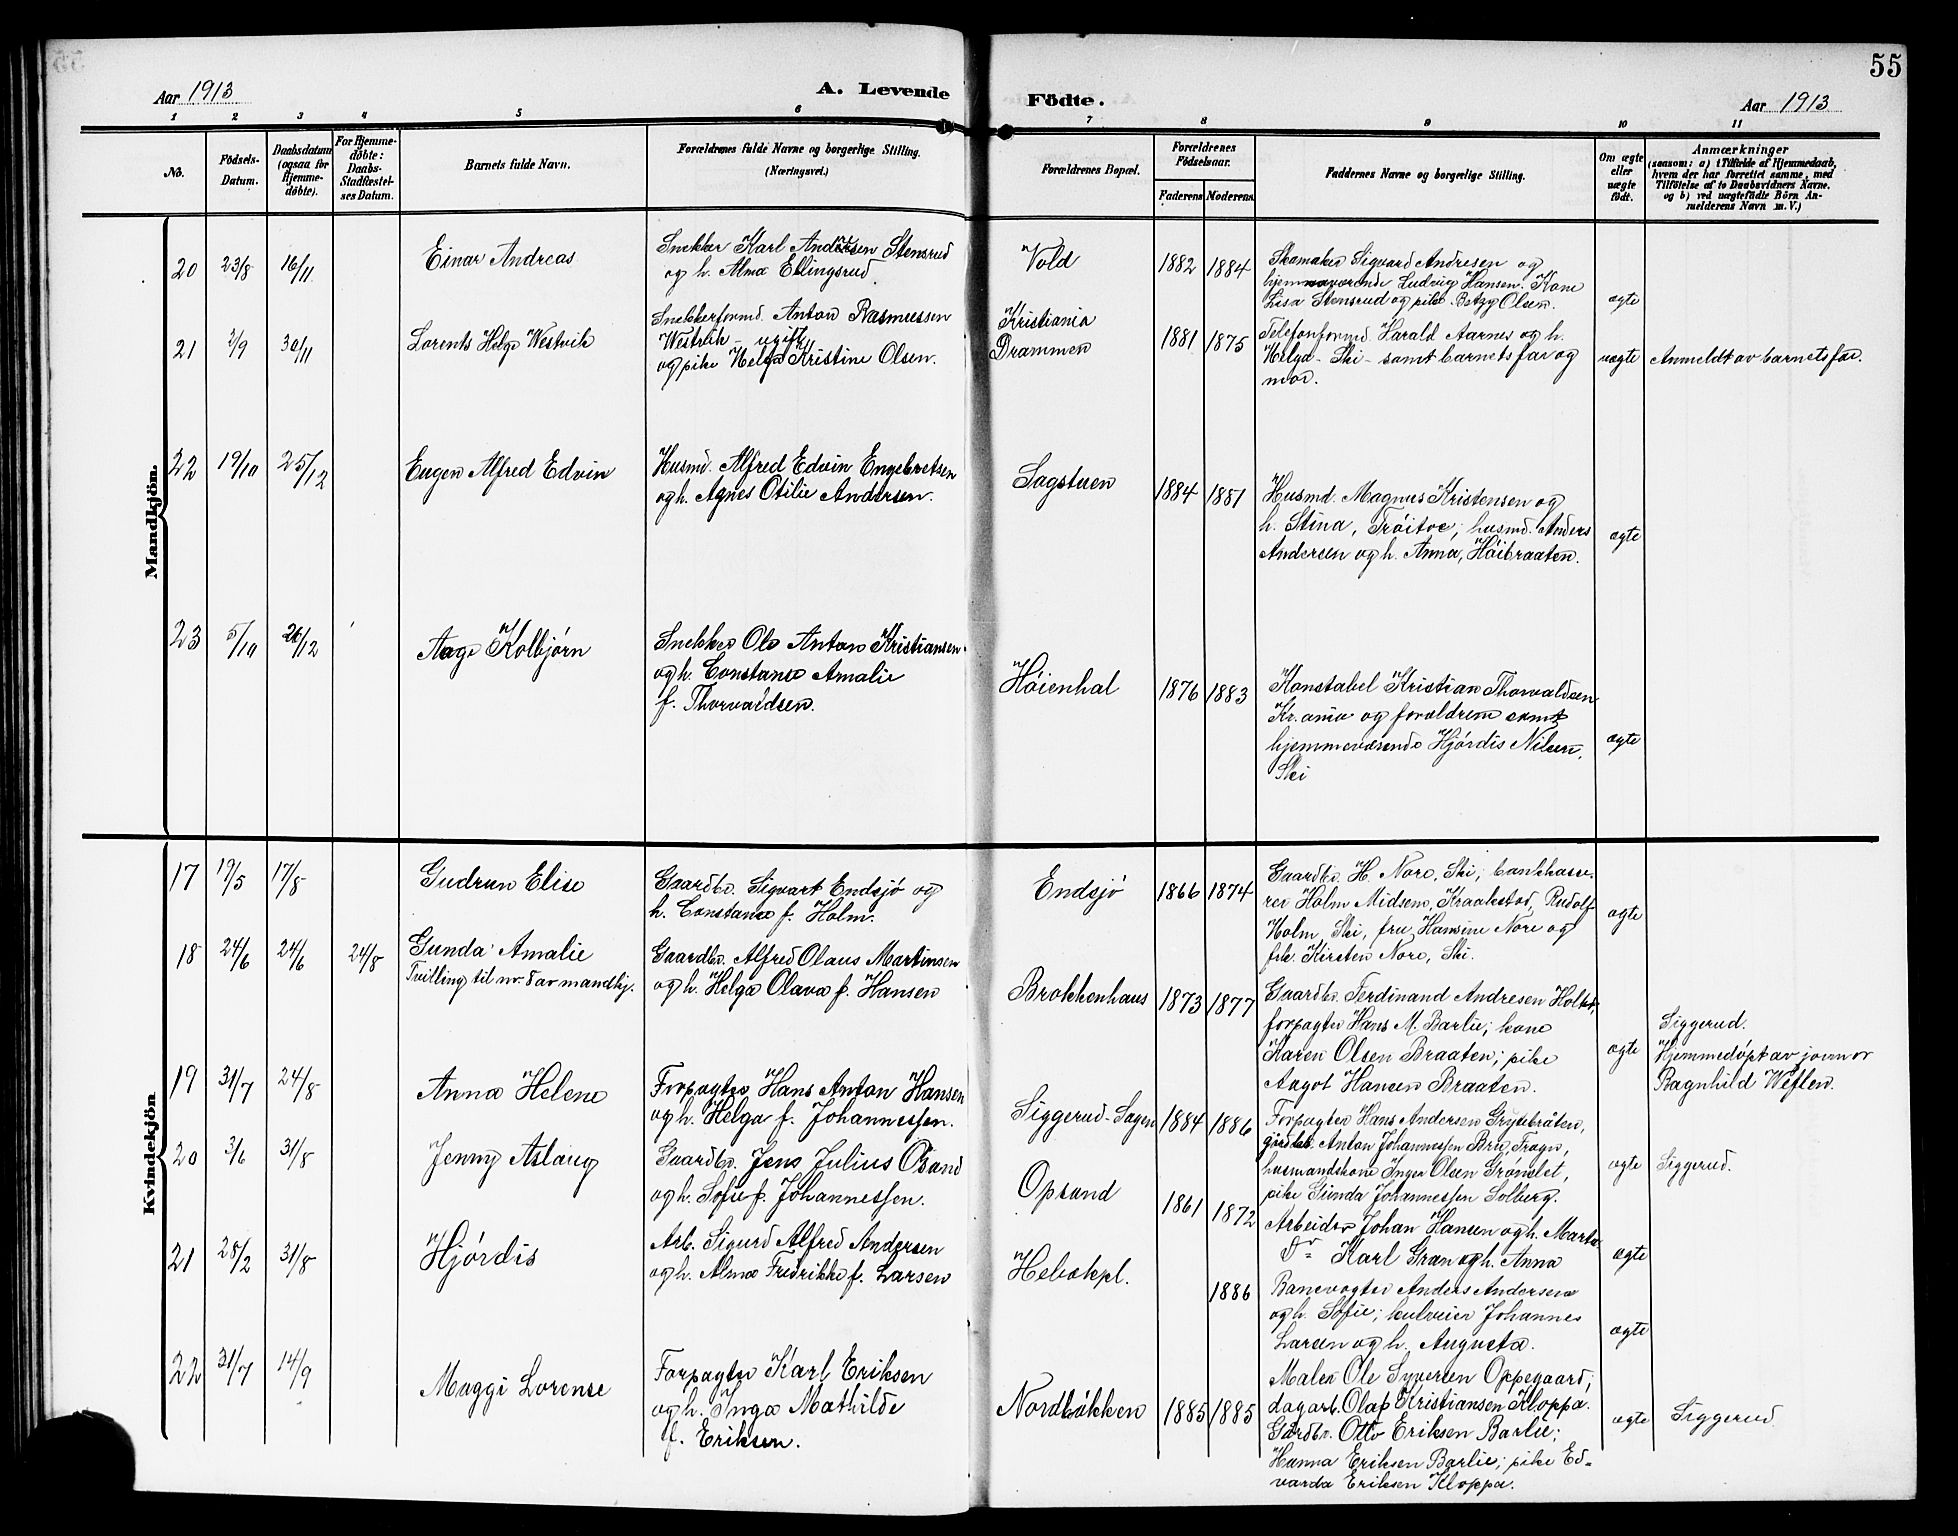 55
Aar 1913
A. Levende Födte.
Aar 1913
1 2 3 4 5 6 7 8 9 10 11
No.
Födsels-
Datum.
Daabsdatum
(ogsaa for
Hjemme-
döbte).
For Hjemme-
döbte:
Daabs-
Stadfæstel-
ses Datum.
Barnets fulde Navn.
Forældrenes fulde Navne og borgerlige Stilling.
(Næringsvei.)
Forældrenes Bopæl.
Forældrenes
Födselsaar.
Faderens Moderens
Faddernes Navne og borgerlige Stilling.
Om ægte
eller
uægte
födt.
Anmærkninger
(saasom: a) i Tilfælde af Hjemmedaab,
hvem der har forrettet samme, med
Tilföielse af to Daabsvidners Navne.
og b) ved uægtefödte Börn An-
melderens Navn m. V.)
Mandkjön.
20 23/8 16/11
Einar Andreas
Snekker Karl Andersen Stensrud
og h. Alma Ellingsrud
Vold
1882 1884
Skomaker Sigvard Andresen og
hjemmeværende Ludvig Hansen. Kone
Lisa Stensrud og pike Betzy Olsen.
ægte
21 2/9 30/11
Lorents Helge Westvik
Snekkerformd. Anton Rasmussen
Westvik - ugift
og pike Helga Kristine Olsen.
Kristiania
Drammen
1881 1875
Telefonformd. Harald Aarnes og h.
Helga - Ski - samt barnets far og
mor.
uægte
Anmeldt av barnets far.
22 19/10 25/12
Eugen Alfred Edvin
Husmd. Alfred Edvin Engebretsen
og h. Agnes Otilie Andersen.
Sagstuen
1884 1881
Husmd. Magnus Kristensen og
h. Stina, Tröitoe; husmd. Anders
Andersen og h. Anna, Höibraaten.
ægte
23 5/10 26/12
Aage Kolbjörn
Snekker Ole Anton Kristiansen
og h. Constance Amalie
f. Thorvaldsen.
Höienhal
1876 1883
Konstabel Kristian Thorvaldsen
Kr.ania og forældrene samt
hjemmeværende Hjördis Nilsen,
Ski
ægte
Kvindekjön
17 19/5 17/8
Gudrun Elise
Gaardbr. Sigvart Endsjö og
h. Constance f. Holm.
Endsjö
1866 1874
Gaardbr. H. Nore, Ski; bankkasse-
rer Holm Midsem, Kraakstad, Rudolf
Holm, Ski, fru Hansine Nore og
frk. Kirsten Nore, Ski.
ægte
18 24/6 24/6 24/8
Gunda Amalie
Tvilling til nr. 8 av mandkj.
Gaardbr. Alfred Olaus Martinsen
og h. Helga Olava f. Hansen
Brokkenhaus
1873 1877
Gaardbr. Ferdinand Andresen Holt,
forpagter Hans M. Barlie; kone
Karen Olsen Braaten; pike
Aagot Hansen Braaten.
ægte
Siggerud.
Hjemmedöpt av jormor
Ragnhild Weflen.
19 31/7 24/8
Anna Helene
Forpagter Hans Anton Hansen
og h. Helga f. Johannessen.
Siggerud-Sagen
1884 1886
Forpagter Hans Andersen Grytebråten,
gårdbr. Anton Johannessen Bru, Frogn,
husmandskone Inger Olsen Grönslet,
pike Gunda Johannessen Solberg.
ægte
Siggerud.
20 3/6 31/8
Jenny Aslaug
Gaardbr. Jens Julius Opsand
og h. Sofie f. Johannessen.
Opsand
1861 1872
Arbeider Johan Hansen og h. Marta
Do Karl Gran og h. Anna
ægte
21 28/2 31/8
Hjördis
Arb. Sigurd Alfred Andersen
og h. Alma Fredrikke f. Larsen
Hebekpl.
1886
Banevogter Anders Andersen
og h. Sofie; hulveier Johannes
Larsen og h. Augusta.
ægte
22 31/7 14/9
Maggi Lorense
Forpagter Karl Eriksen
og h. Inga Mathilde
f. Eriksen.
Nordbökken
1885 1885
Maler Ole Syversen Oppegaard;
dagarb. Olaf Kristiansen Kloppa.
Gårdbr. Otto Eriksen Barlie;
Hanna Eriksen Barlie; pike Ed-
varda Eriksen Kloppa.
ægte
Siggerud.